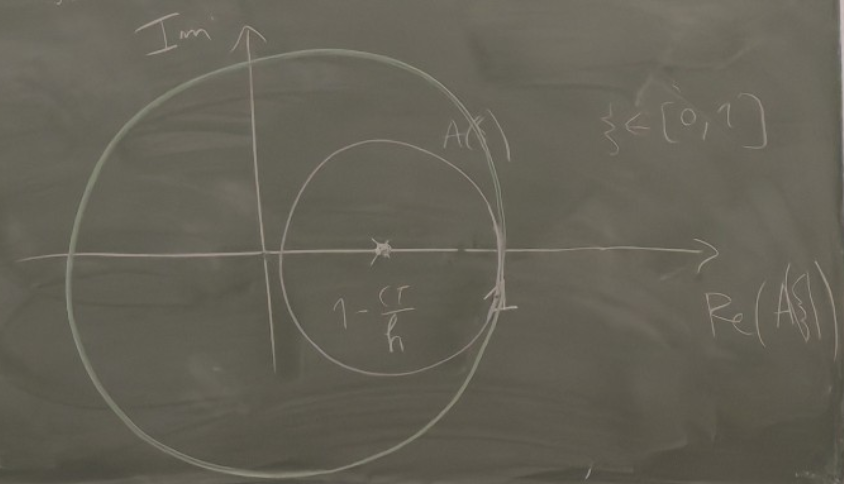 Im
A(ξ)
ξ ∈ [0, 1]
1 - cτ/h
1
Re(A(ξ))